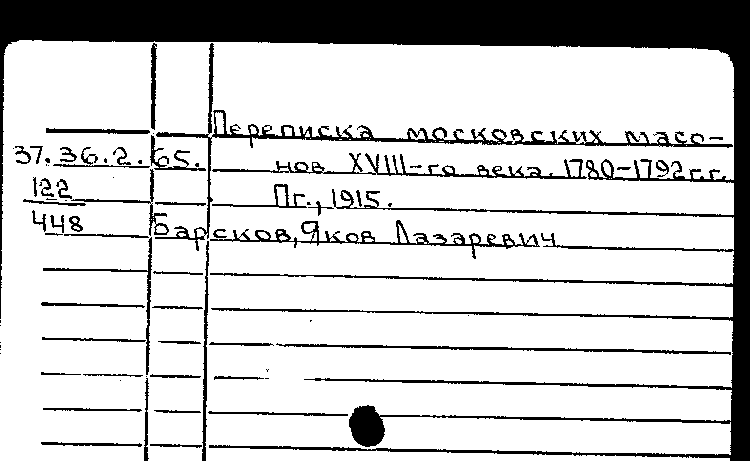 Переписка московских масо-
37.36.2.65. нов XVIII-го века. 1780-1792г.г.
122 Пг., 1915.
448 Барсков, Яков Лазаревич